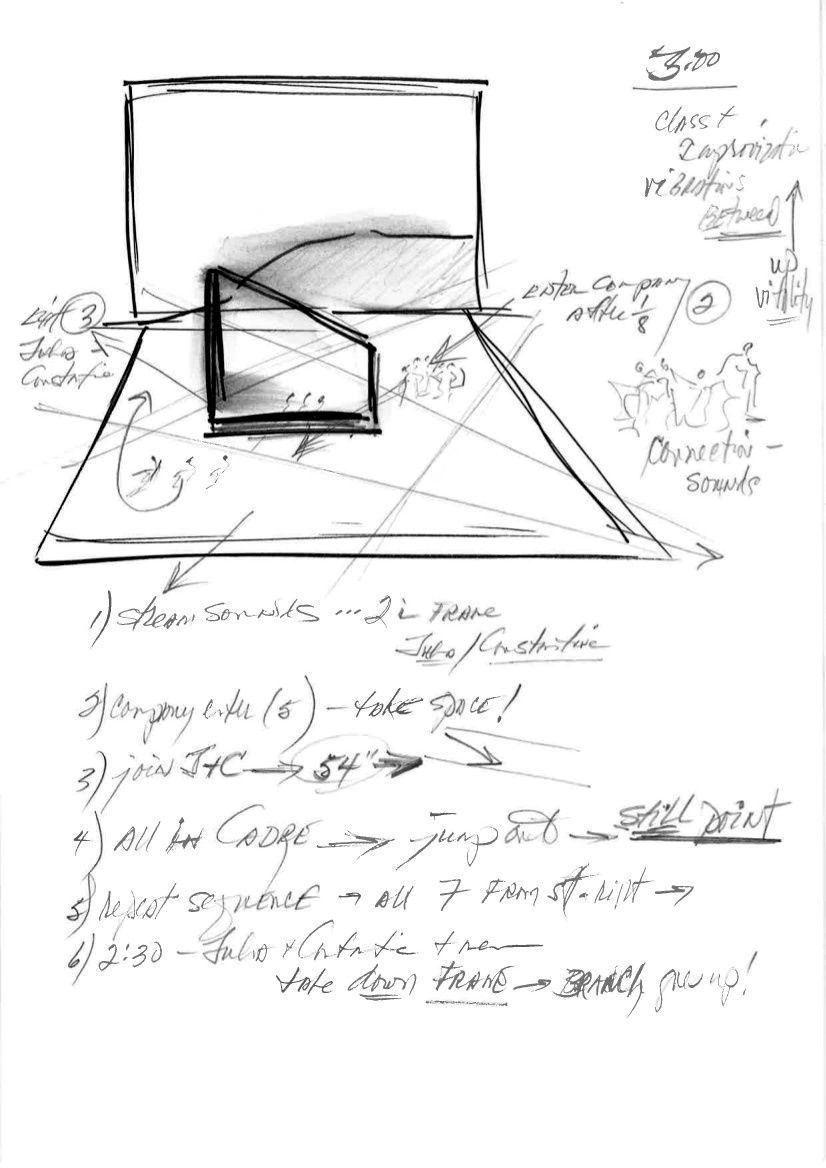 3:00
CLASS +
Improvization
VIBRATIONS
BETWEEN
up
vitility
enter Company
after 1/8
2
3
Julia +
Connection -
SOUNDS
1) stream SOUNDS ... 2 in FRAME
Julia / Constantine
2) company enter (5) - take space!
3) join J + C → 54" →
4) ALL IN CADRE → jump out → still point
5) repeat sequence → ALL 7 from st. right →
6) 2:30 - Julia +
take down FRAME → BRANCH up!